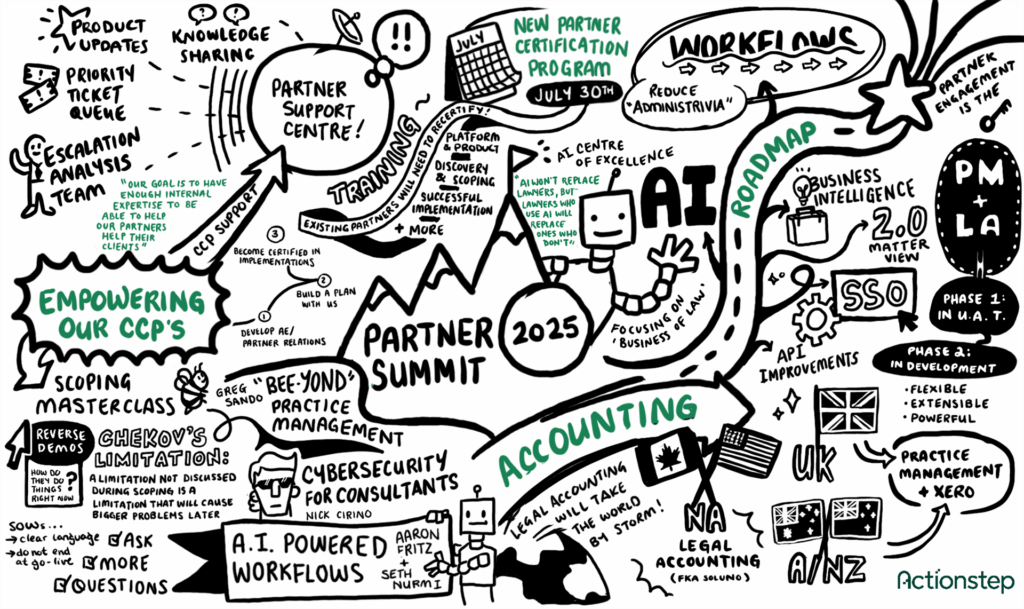 PRODUCT
UPDATES
KNOWLEDGE
SHARING
PRIORITY
TICKET
QUEUE
ESCALATION
ANALYSIS
TEAM
PARTNER
SUPPORT
CENTRE!
!!
"OUR GOAL IS TO HAVE
ENOUGH INTERNAL
EXPERTISE TO BE
ABLE TO HELP
OUR PARTNERS
HELP THEIR
CLIENTS"
CCP SUPPORT
EMPOWERING
OUR CCP'S
JULY
NEW PARTNER
CERTIFICATION
PROGRAM
JULY 30TH
TRAINING
EXISTING PARTNERS WILL NEED TO RECERTIFY!
PLATFORM
& PRODUCT
DISCOVERY
& SCOPING
SUCCESSFUL
IMPLEMENTATION
+ MORE
3
BECOME CERTIFIED IN
IMPLEMENTATIONS
2
BUILD A PLAN
WITH US
1
DEVELOP AE/
PARTNER RELATIONS
PARTNER
SUMMIT
2025
AI CENTRE
OF EXCELLENCE
"AI WON'T REPLACE
LAWYERS, BUT
LAWYERS WHO
USE AI WILL
REPLACE
ONES WHO
DON'T"
AI
FOCUSING ON
'BUSINESS OF LAW'
WORKFLOWS
REDUCE
"ADMINISTRIVIA"
ROADMAP
PARTNER
ENGAGEMENT
IS THE
PM
+
LA
PHASE 1:
IN U.A.T.
PHASE 2:
IN DEVELOPMENT
• FLEXIBLE
• EXTENSIBLE
• POWERFUL
BUSINESS
INTELLIGENCE
2.0
MATTER
VIEW
SSO
API
IMPROVEMENTS
SCOPING
MASTERCLASS
REVERSE
DEMOS
HOW DO
THEY DO
THINGS
RIGHT NOW
?
CHEKOV'S
LIMITATION:
A LIMITATION NOT DISCUSSED
DURING SCOPING IS A
LIMITATION THAT WILL CAUSE
BIGGER PROBLEMS LATER
SOWs...
→ clear language
→ do not end
at go-live
ASK
MORE
QUESTIONS
GREG
SANDO
"BEE-YOND"
PRACTICE
MANAGEMENT
CYBERSECURITY
FOR CONSULTANTS
NICK CIRINO
A.I. POWERED
WORKFLOWS
AARON
FRITZ
+
SETH
NURMI
ACCOUNTING
LEGAL ACCOUNTING
WILL TAKE
THE WORLD
BY STORM!
NA
LEGAL
ACCOUNTING
(FKA SOLUNO)
UK
A/NZ
PRACTICE
MANAGEMENT
+ XERO
Actionstep